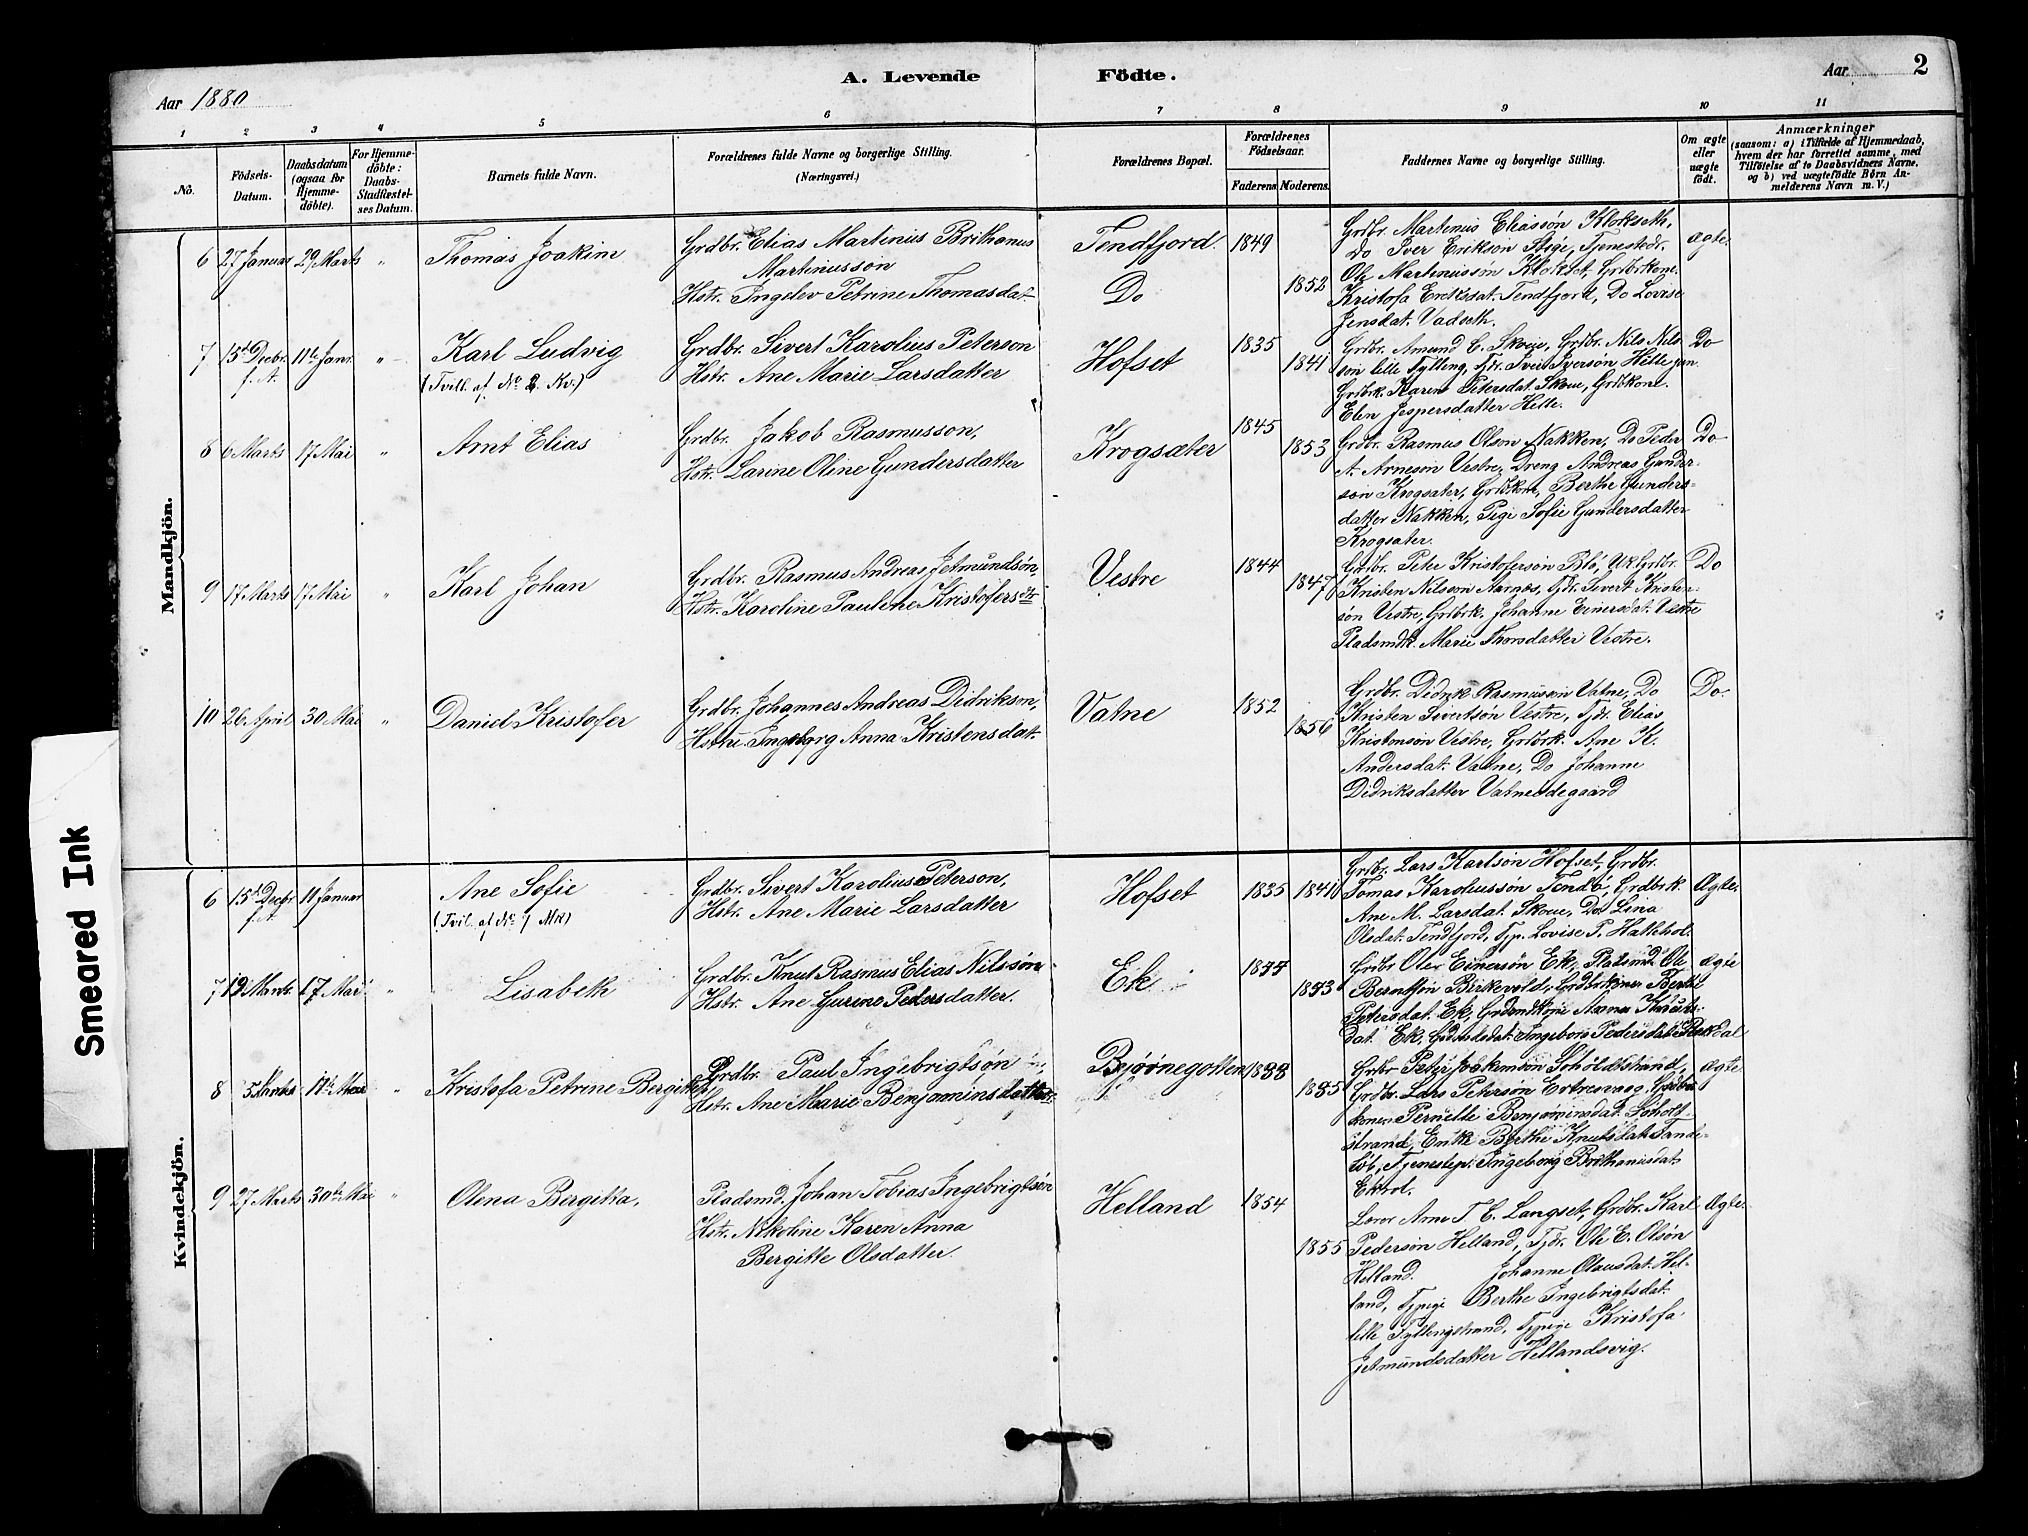 A. Levende Födte.
Aar 1880
Aar 2
1 2 3 4 5 6 7 8 9 10 11
No.
Födsels-Datum.
Daabsdatum (ogsaa for Hjemme-döbte).
For Hjemme-döbte: Daabs-Stadfæstel-ses Datum.
Barnets fulde Navn.
Forældrenes fulde Navne og borgerlige Stilling.
(Næringsvei.)
Forældrenes Bopæl.
Forældrenes Födselsaar.
Faderens. Moderens.
Faddernes Navne og borgerlige Stilling.
Om ægte eller uægte födt.
Anmærkninger
(saasom: a) i Tilfælde af Hjemmedaab, hvem der har forrettet samme, med Tilföielse af to Daabsvidners Navne, og b) ved uægtefödte Börn An-melderens Navn m. V.)
Mandkjön.
6 27 Januar 29 Marts " Thomas Joakim
Grdbr. Elias Martinus Brithanus
Martinussön
Hstr. Ingelev Petrine Thomasdat
Tendfjord. 1849
Do 1852
Grdbr. Martinus Eliassøn Klokseth,
Do Iver Erikson Stige, Tjenestedr.
Ole Martinussøn Klokset, Grdbrkone
Kristofa Eriksdat. Tendfjord, Do Lovise
Jensdat. Vadseth.
ægte
7 15de Decbr. f. A. 11te Janr. " Karl Ludvig
(Tvill. af No 2 Kv.)
Grdbr. Sivert Karolius Peterson
Hstr. Ane Marie Larsdatter
Hofset 1835 1841
Grdbr. Amund C. Skoue, Grdbr. Nils Nils
son lille Tylling, Tjdr. Iver Iversøn Helle jun.
Grdbrk. Karen Petersdat. Skoue, Grdbkone.
Elen Jespersdatter Helle.
Do
8 6 Marts 17 Mai " Arnt Elias
Grdbr. Jakob Rasmusson,
Hstr. Larine Oline Gundersdatter
Krogsæter 1845 1853
Grdbr. Rasmus Olson Nakken, Do Peder
A. Arneson Vestre, Dreng Andreas Gunder-
son Krogsæter, Grdbkone, Berthe Gunders-
datter Nakken, Pige Sofie Gundersdatter
Krogsæter.
Do
9 17 Marts 17 Mai " Karl Johan
Grdbr. Rasmus Andreas Jetmundsøn,
Hstr. Karoline Pauline Kristofersdtr
Vestre 1844 1847
Grdbr. Peter Kristofersøn Blø, Grdbr.
Kristen Nilsson Aarnæs, Tjdr. Sivert Kristen-
søn Vestre, Grdbrk. Johanne Einersdat. Vestre
Pladsmdk. Marie Thorsdatter Vestre.
Do
10 26 April 30 Mai " Daniel Kristofer
Grdbr. Johannes Andreas Didrikson,
Hstru. Ingeborg Anna Kristensdat.
Vatne 1852 1856
Grdbr. Didrik Rasmussøn Vatne, Do
Kristen Sivertsøn Vestre, Tjdr. Elias
Kristensøn Vestre, Grdbrk. Ane K.
Andersdat. Vatne, Do Johanne
Didriksdatter Vatneødegaard
Do.
Kvindekjön.
6 15de Decbr f. A. 11 Januar Ane Sofie
(Tvil. af No 7 Mk)
Grdbr. Sivert Karolius Peterson,
Hstr. Ane Marie Larsdatter
Hofset 1835 1841
Grdbr. Lars Karlsøn Hofset, Grdbr.
Tomas Karoliussøn Tendø, Grdbrk.
Ane M. Larsdat. Skoue, Do Lina
Olsdat. Tendfjord, Tjp. Lovise P.
Ægte.
7 19 Marts 17 Mai " Lisabeth
Grdbr. Knut Rasmus Elias Nilssön
Hstr. Ane Gurine Pedersdatter.
Ek
Grdbr Ole Einersøn Ek, Pladsmd Ole
Berntsøn Birkevold, Grdbrkone Berthe
Petersdat. Ek,
dat Ek, Ingeborg Pedersdat
ægte
8 5 Marts 17de Mai " Kristofa Petrine Bergitha
Grdbr. Paul Ingebrigtsøn
Hstr. Ane Marie Benjaminsdatter
Bjørnegotten
Grdbr Peter Joakimsøn Søholtstrand,
Grdbr. Lars Petersøn
Pernelle Benjaminsdat. Søholt-
strand, Enke Berthe Knutsdat
Tjenestep. Ingeborg Brithanusdat
ægte
9 27 Marts 30te Mai " Olena Bergitha,
Pladsmd. Johan Tobias Ingebrigtsøn
Hstr. Nikoline Karen Anna
Bergitte Olsdatter
Helland 1854 1855
Lærer Arne T. C. Langset, Grdbr. Karl
Pedersøn Helland, Tjdr. Ole E. Olsøn
Helland. Johanne Olausdat. Hel-
land, Tjpige Berthe Ingebrigtsdat.
lille Tyllingstrand, Tjpige Kristofa
Jetmundsdatter Hellandsvig.
Ægte.
Smeared Ink